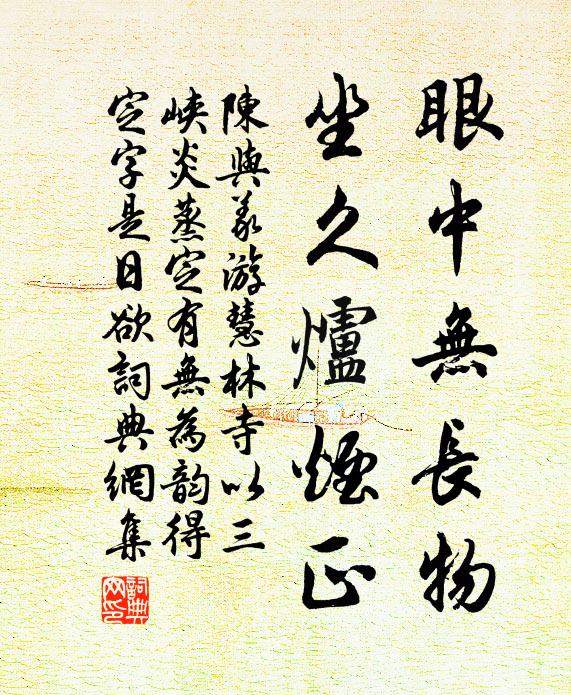 眼中無長物
坐久爐煙正
陳與義游慧林寺以三
峽炎蒸定有無為韵得
定字是日欲詞典網集
詞典网印